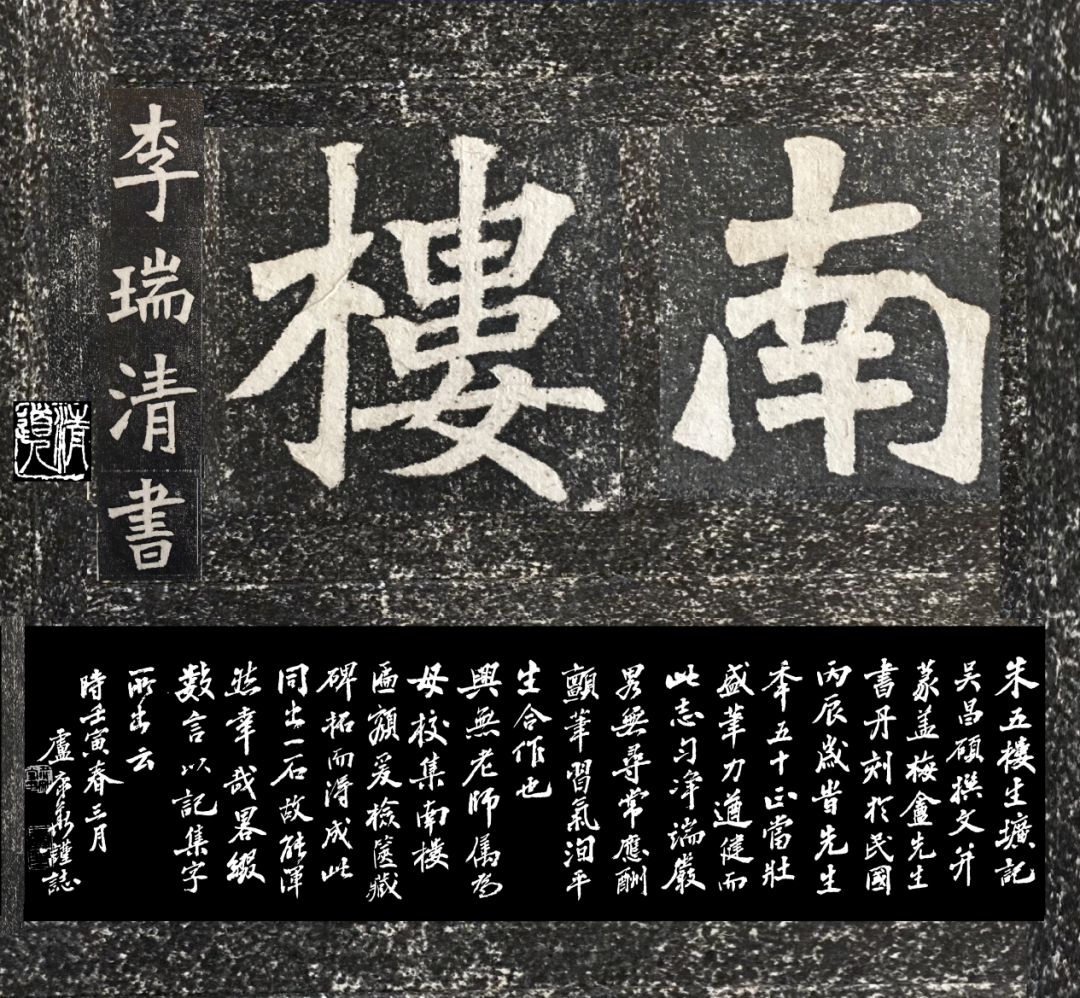 南樓
李瑞清書
清道人
朱五樓生壙記
吳昌碩撰文并
篆蓋梅盦先生
書丹刻於民國
丙辰歲皆先生
年五十正當壯
盛筆力遒健而
此志勻淨端嚴
畧無尋常應酬
顫筆習氣洵平
生合作也
興無老師屬為
母校集南樓
匾額爰檢篋藏
碑拓而得成此
同出一石故能渾
然幸哉畧綴
數言以記集字
所出云
時壬寅春三月
盧康 謹誌